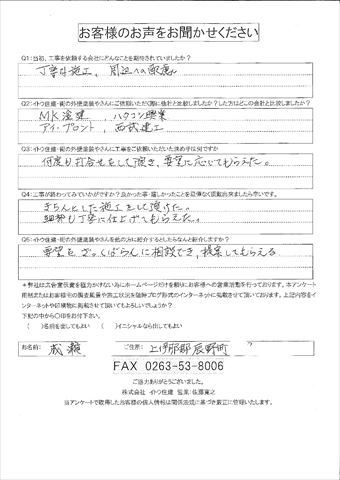 お客様のお声をお聞かせください
Q1:当初、工事を依頼する会社にどんなことを期待されていましたか?
丁寧な施工、周辺への配慮
Q2:イトウ住建・街の外壁塗装やさんにご依頼いただく際に他社と比較しましたか?した方はどこの会社と比較しましたか?
MK塗建、ハウコン興業
アイ・フロント、西武建工
Q3:イトウ住建・街の外壁塗装やさんに工事をご依頼いただいた決め手は何ですか
何度も打合せをして頂き、要望に応じてもらえた。
Q4:工事が終わってみていかがですか?良かった事・嬉しかったことを忌憚なく頂戴出来ましたら幸いです。
きちんとした施工をして頂けた。
細部も丁寧に仕上げてもらえた。
Q5:イトウ住建・街の外壁塗装やさんを他の方に紹介するとしたらなんと紹介しますか?
要望をざっくばらんに相談でき、提案してもらえる
*弊社は広告宣伝費を極力かけない為にホームページだけを頼りにお客様への営業活動を行っております。本アンケート
用紙またはお客様宅の調査風景や施工状況を随時ブログ形式のインターネットに掲載させて頂いております。上記内容をイ
ンターネットや印刷物に掲載させて頂いてもよろしいでしょうか?
下記の中から〇印をお付下さい。
( )名前を出してもよい ( )イニシャルなら出してもよい
お名前: 成瀬 ご住所: 上伊那郡辰野町
FAX 0263-53-8006
ご協力ありがとうございました。
株式会社 イトウ住建 監業:佐藤寛之
※アンケートで取得したお客様の個人情報は関係法規に基づき厳正に管理いたします。